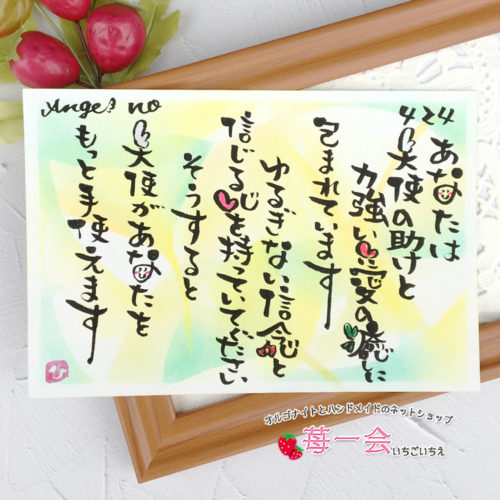 424
あなたは
天使の助けと
力強い愛の癒しに
包まれています
ゆるぎない信念と
信じる心を持っていてください
そうすると
Angel no
天使があなたを
もっと手使えます
オルゴナイトとハンドメイドのネットショップ
苺一会いちごいちえ